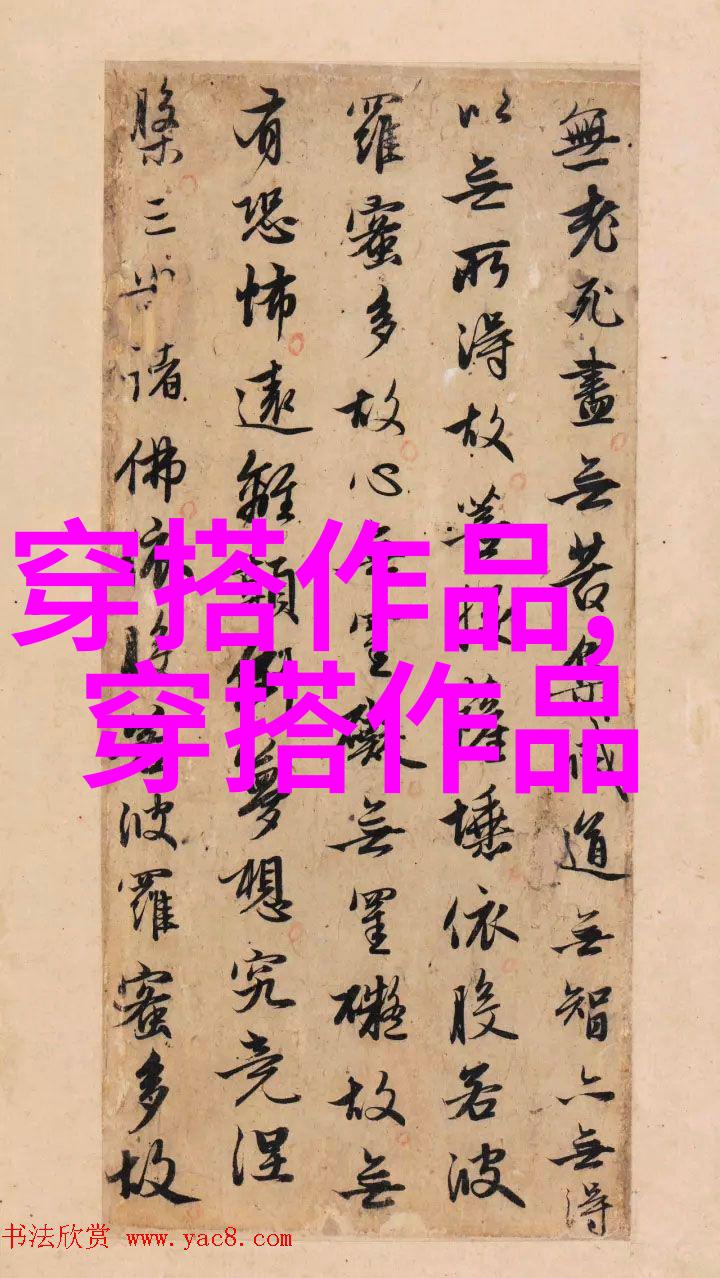 無老死盡无苦集滅道无智亦無得
以无所得故菩提薩埵依般若波
羅蜜多故心无罣礙无罣礙故无
有恐怖遠離顛倒夢想究竟涅
槃三世諸佛依般若波羅蜜多故
穿搭作品,
穿搭作品
书法欣赏 www.yac8.com